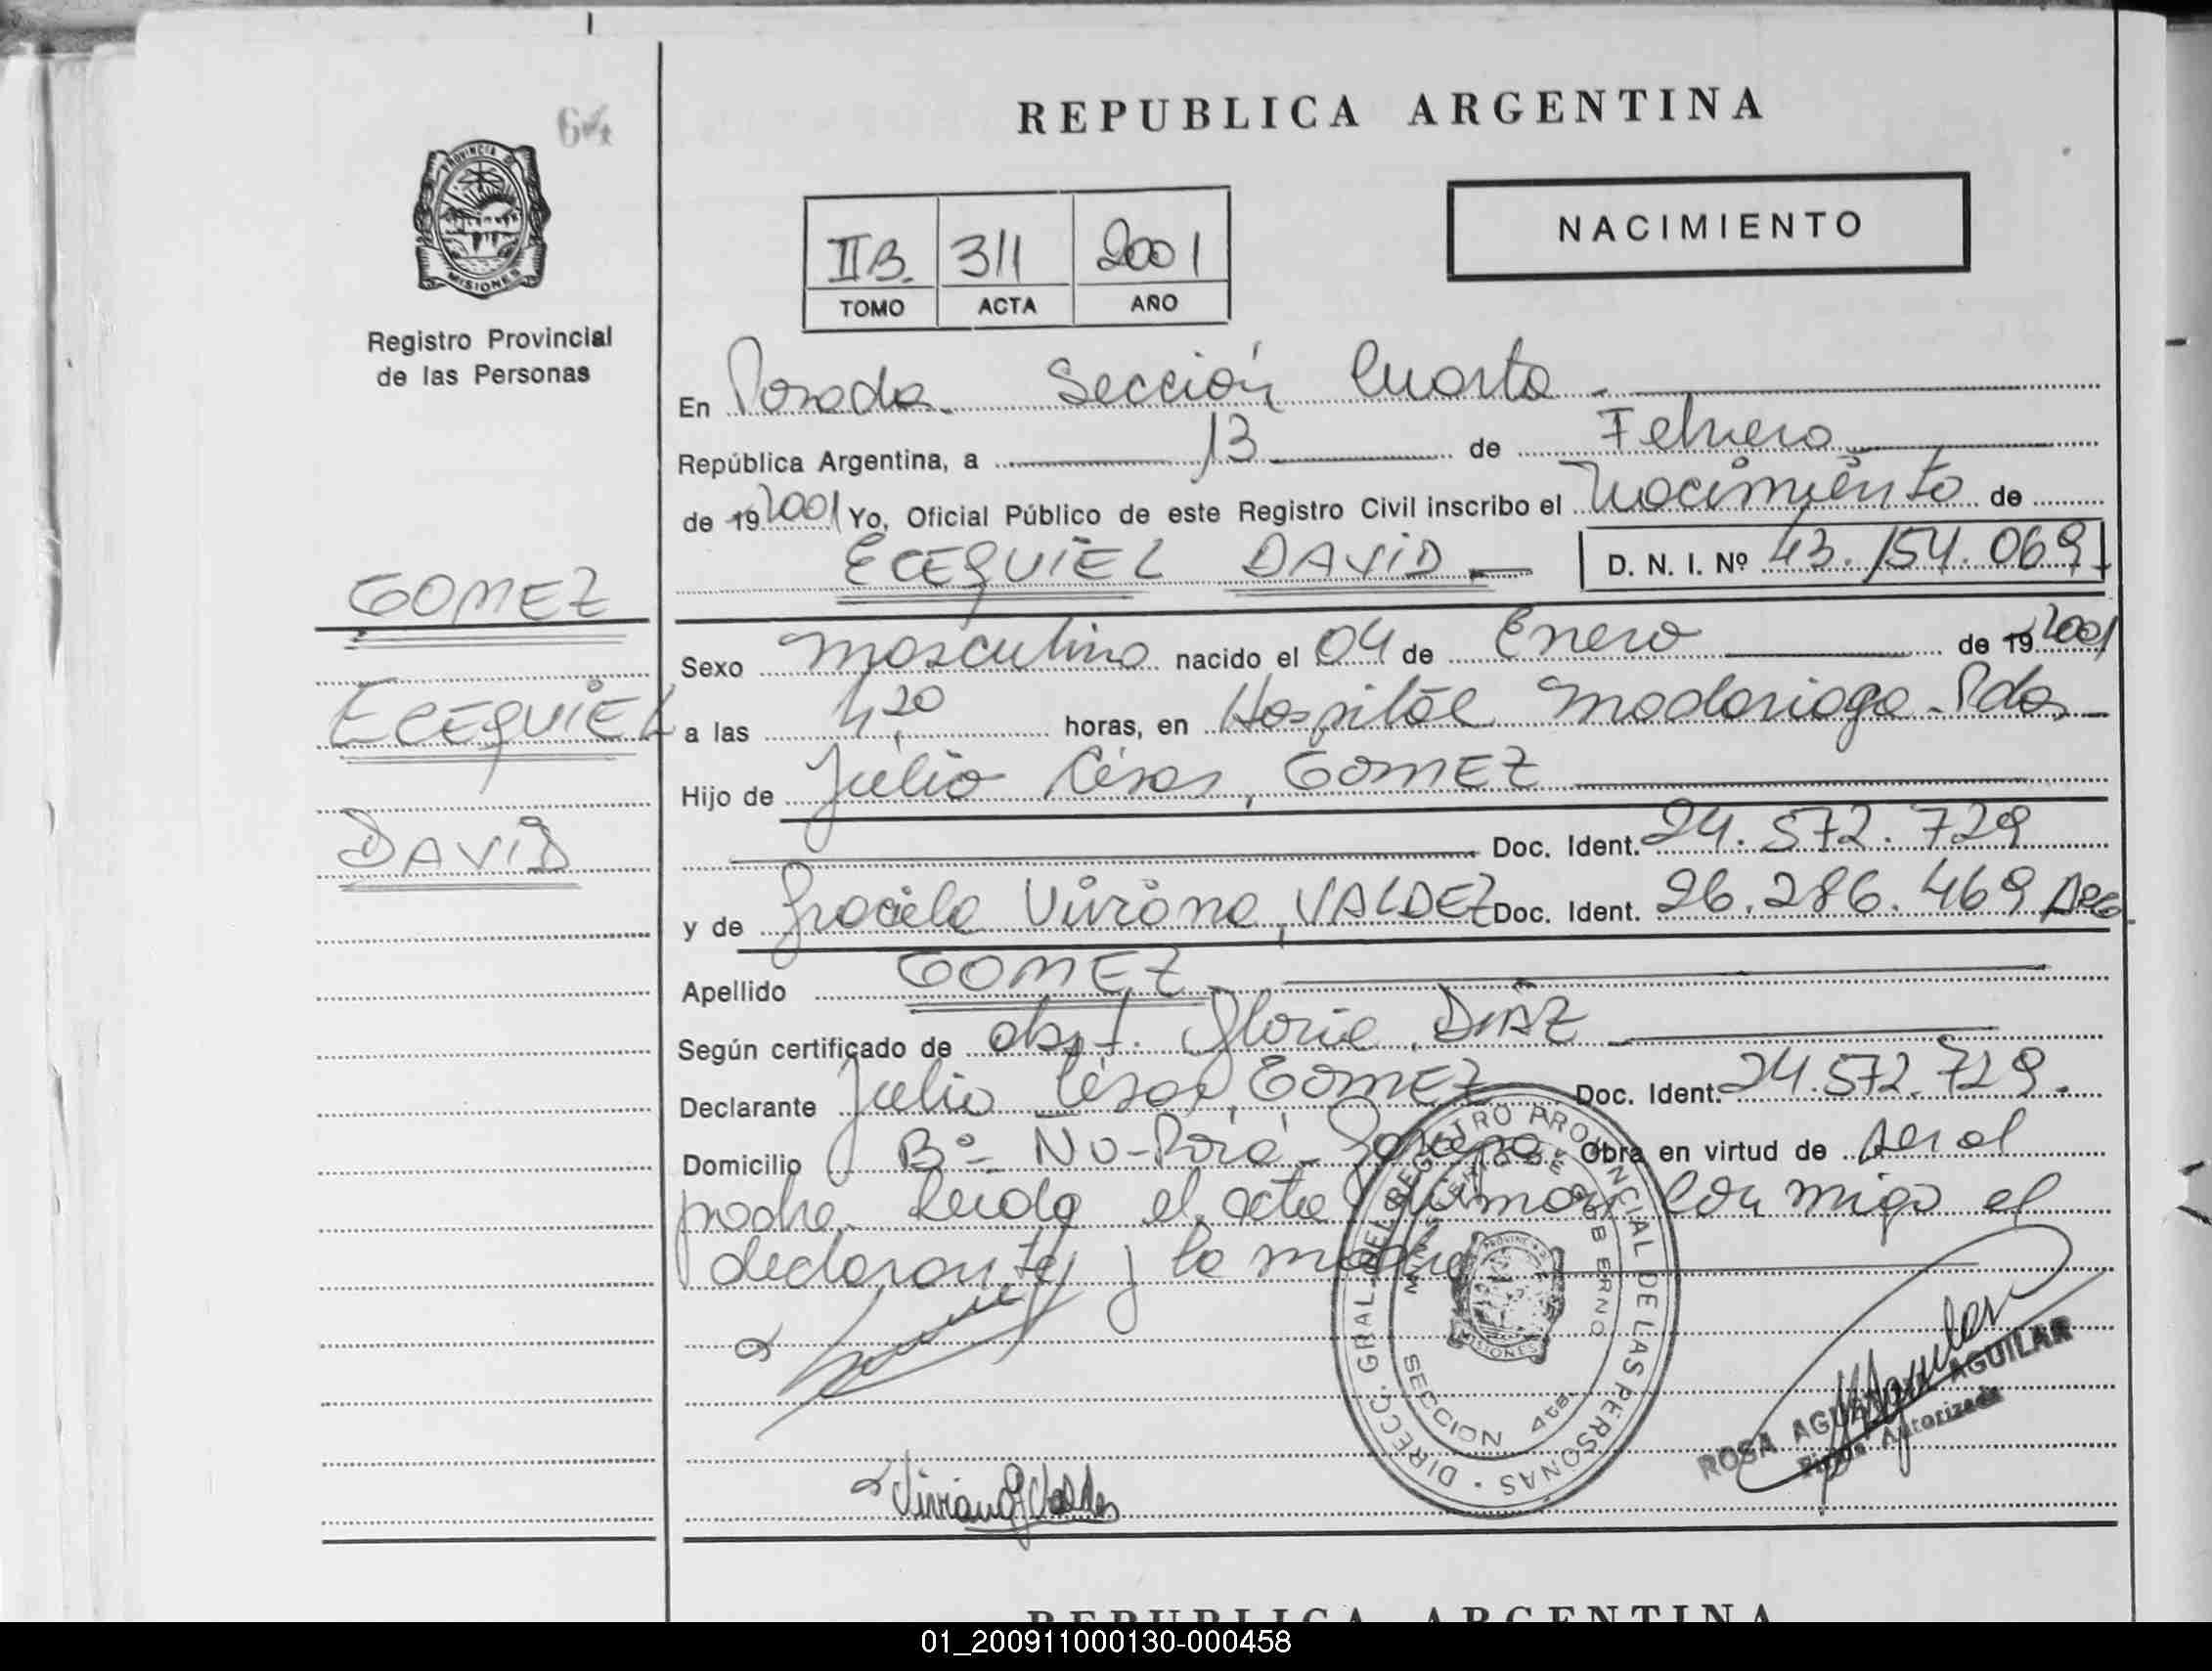 64
REPUBLICA ARGENTINA
PROVINCIA DE MISIONES
Registro Provincial
de las Personas
NACIMIENTO
IIB. 311 2001
TOMO ACTA AÑO
En Posadas Sección Cuarta
República Argentina, a 13 de Febrero
de 19 2001 Yo, Oficial Público de este Registro Civil inscribo el Nacimiento de
ECEQUIEL DAVID D. N. I. Nº 43.154.069
GOMEZ
ECEQUIEL
DAVID
Sexo masculino nacido el 04 de Enero de 19 2001
a las 4,20 horas, en Hospital Madariaga - Pdas
Hijo de Julio César, GOMEZ
Doc. Ident. 24.572.729
y de Graciela Viviana, VALDEZ Doc. Ident. 26.286.469 ARG.
Apellido GOMEZ
Según certificado de obst. Gloria DIAZ
Declarante Julio César, GOMEZ Doc. Ident. 24.572.729.
Domicilio Bº Ñu-Porá - Garupá Obra en virtud de ser el
padre. Leída el acta firman conmigo el
declarante y la madre
DIRECC. GRAL. DEL REGISTRO PROVINCIAL DE LAS PERSONAS
MINISTERIO DE GOBIERNO
PROVINCIA DE MISIONES
SECCION 4ta.
Viviana G Valdes
ROSA AGUILAR
Firma Autorizada
REPUBLICA ARGENTINA
01_200911000130-000458